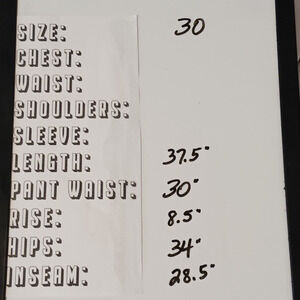 SIZE: 30
CHEST:
WAIST:
SHOULDERS:
SLEEVE:
LENGTH: 37.5"
PANT WAIST: 30"
RISE: 8.5"
HIPS: 34"
INSEAM: 28.5"